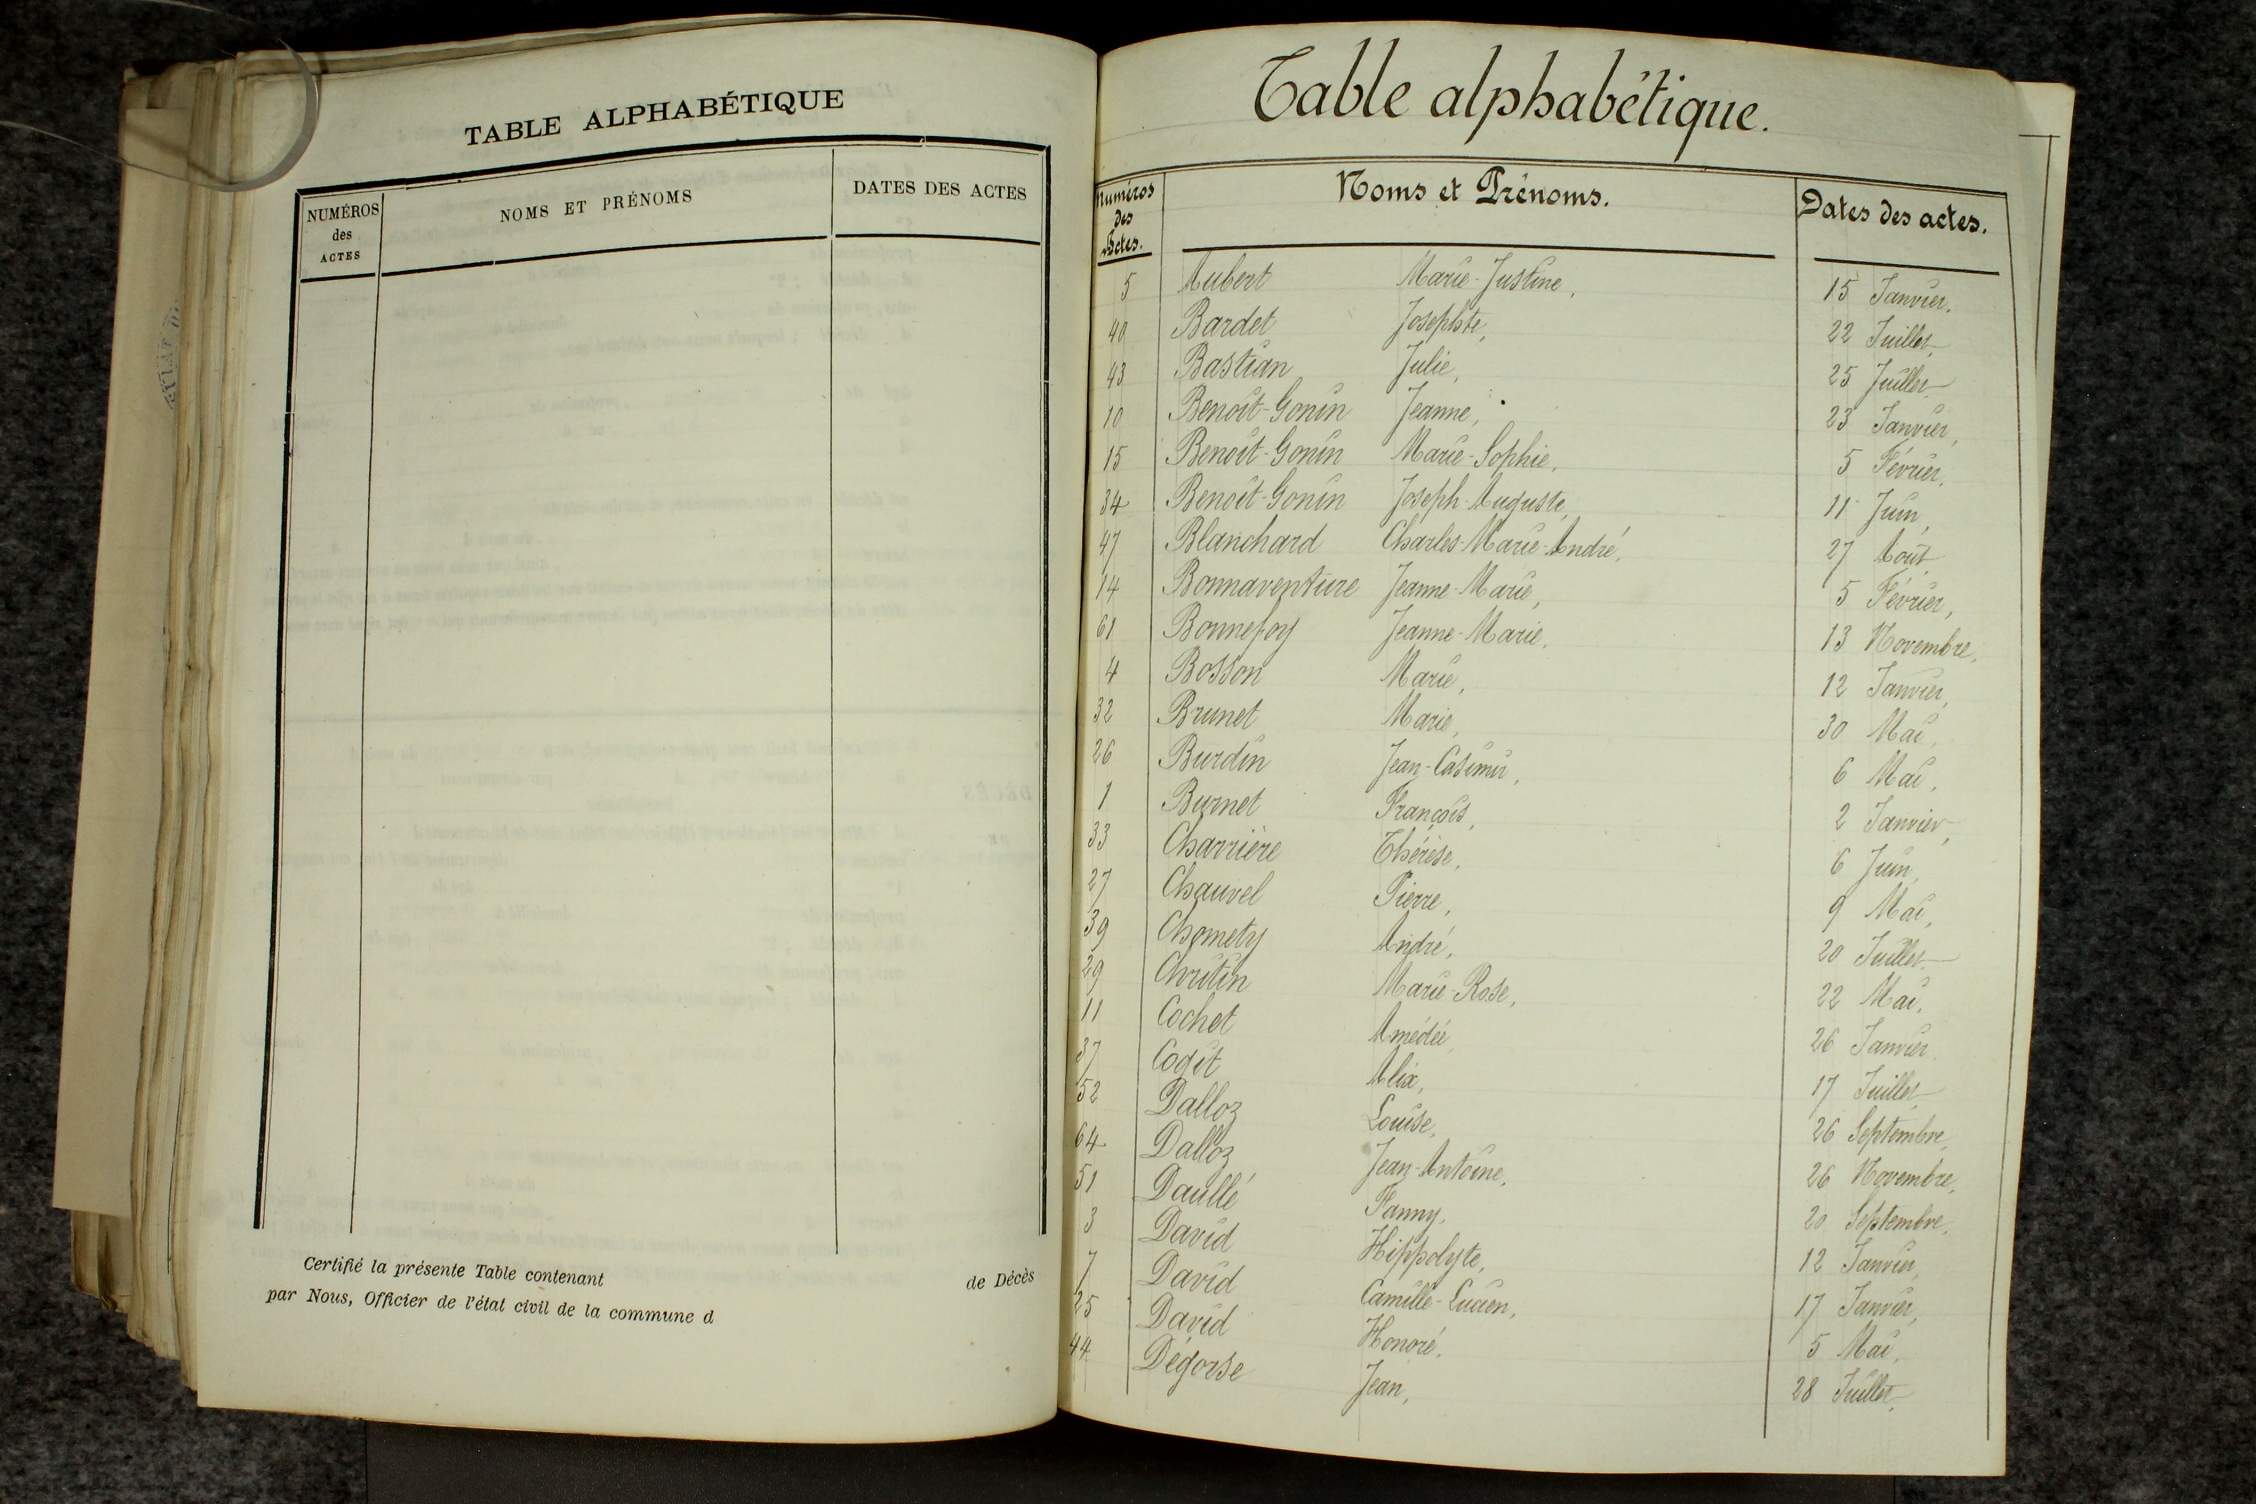 TABLE ALPHABÉTIQUE
NUMÉROS
des
ACTES
NOMS ET PRÉNOMS
DATES DES ACTES
Certifié la présente Table contenant de Décès
par Nous, Officier de l'état civil de la commune d
Table alphabétique.
Numéros
des
Actes.
Noms et Prénoms.
Dates des actes.
5 Aubert Marie-Justine, 15 Janvier,
40 Bardet Josephte, 22 Juillet,
43 Bastian Julie, 25 Juillet,
10 Benoît-Gonin Jeanne, 23 Janvier,
15 Benoît-Gonin Marie-Sophie, 5 Février,
34 Benoît-Gonin Joseph-Auguste, 11 Juin,
47 Blanchard Charles-Marie-André, 27 Août,
14 Bonnaventure Jeanne-Marie, 5 Février,
61 Bonnefoy Jeanne-Marie, 13 Novembre,
4 Bosson Marie, 12 Janvier,
32 Brunet Marie, 30 Mai,
26 Burdin Jean-Casimir, 6 Mai,
1 Burnet François, 2 Janvier,
33 Charrière Thérèse, 6 Juin,
27 Chauvel Pierre, 9 Mai,
39 Chomety André, 20 Juillet,
29 Chritin Marie-Rose, 22 Mai,
11 Cochet Amédée, 26 Janvier
37 Cogit Alix, 17 Juillet,
52 Dalloz Louise, 26 Septembre,
64 Dalloz Jean-Antoine, 26 Novembre,
51 Daullé Fanny, 20 Septembre,
3 David Hippolyte, 12 Janvier,
7 David Camille-Lucien, 17 Janvier,
25 David Honoré, 5 Mai,
44 Dégorse Jean, 28 Juillet,